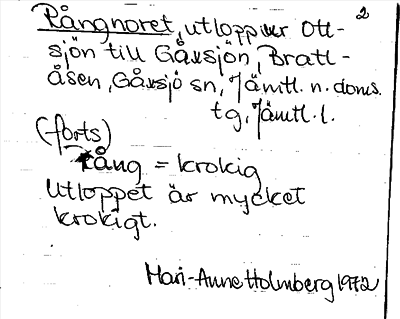 Rångnoret, utlopp ur Ott- 2
sjön till Gåxsjön, Bratt-
åsen, Gåxsjö sn, Jämtl. n. doms.
tg, Jämtl. l.
(forts)
Rång = krokig
Utloppet är mycket
krokigt.
Mari-Anne Holmberg 1972